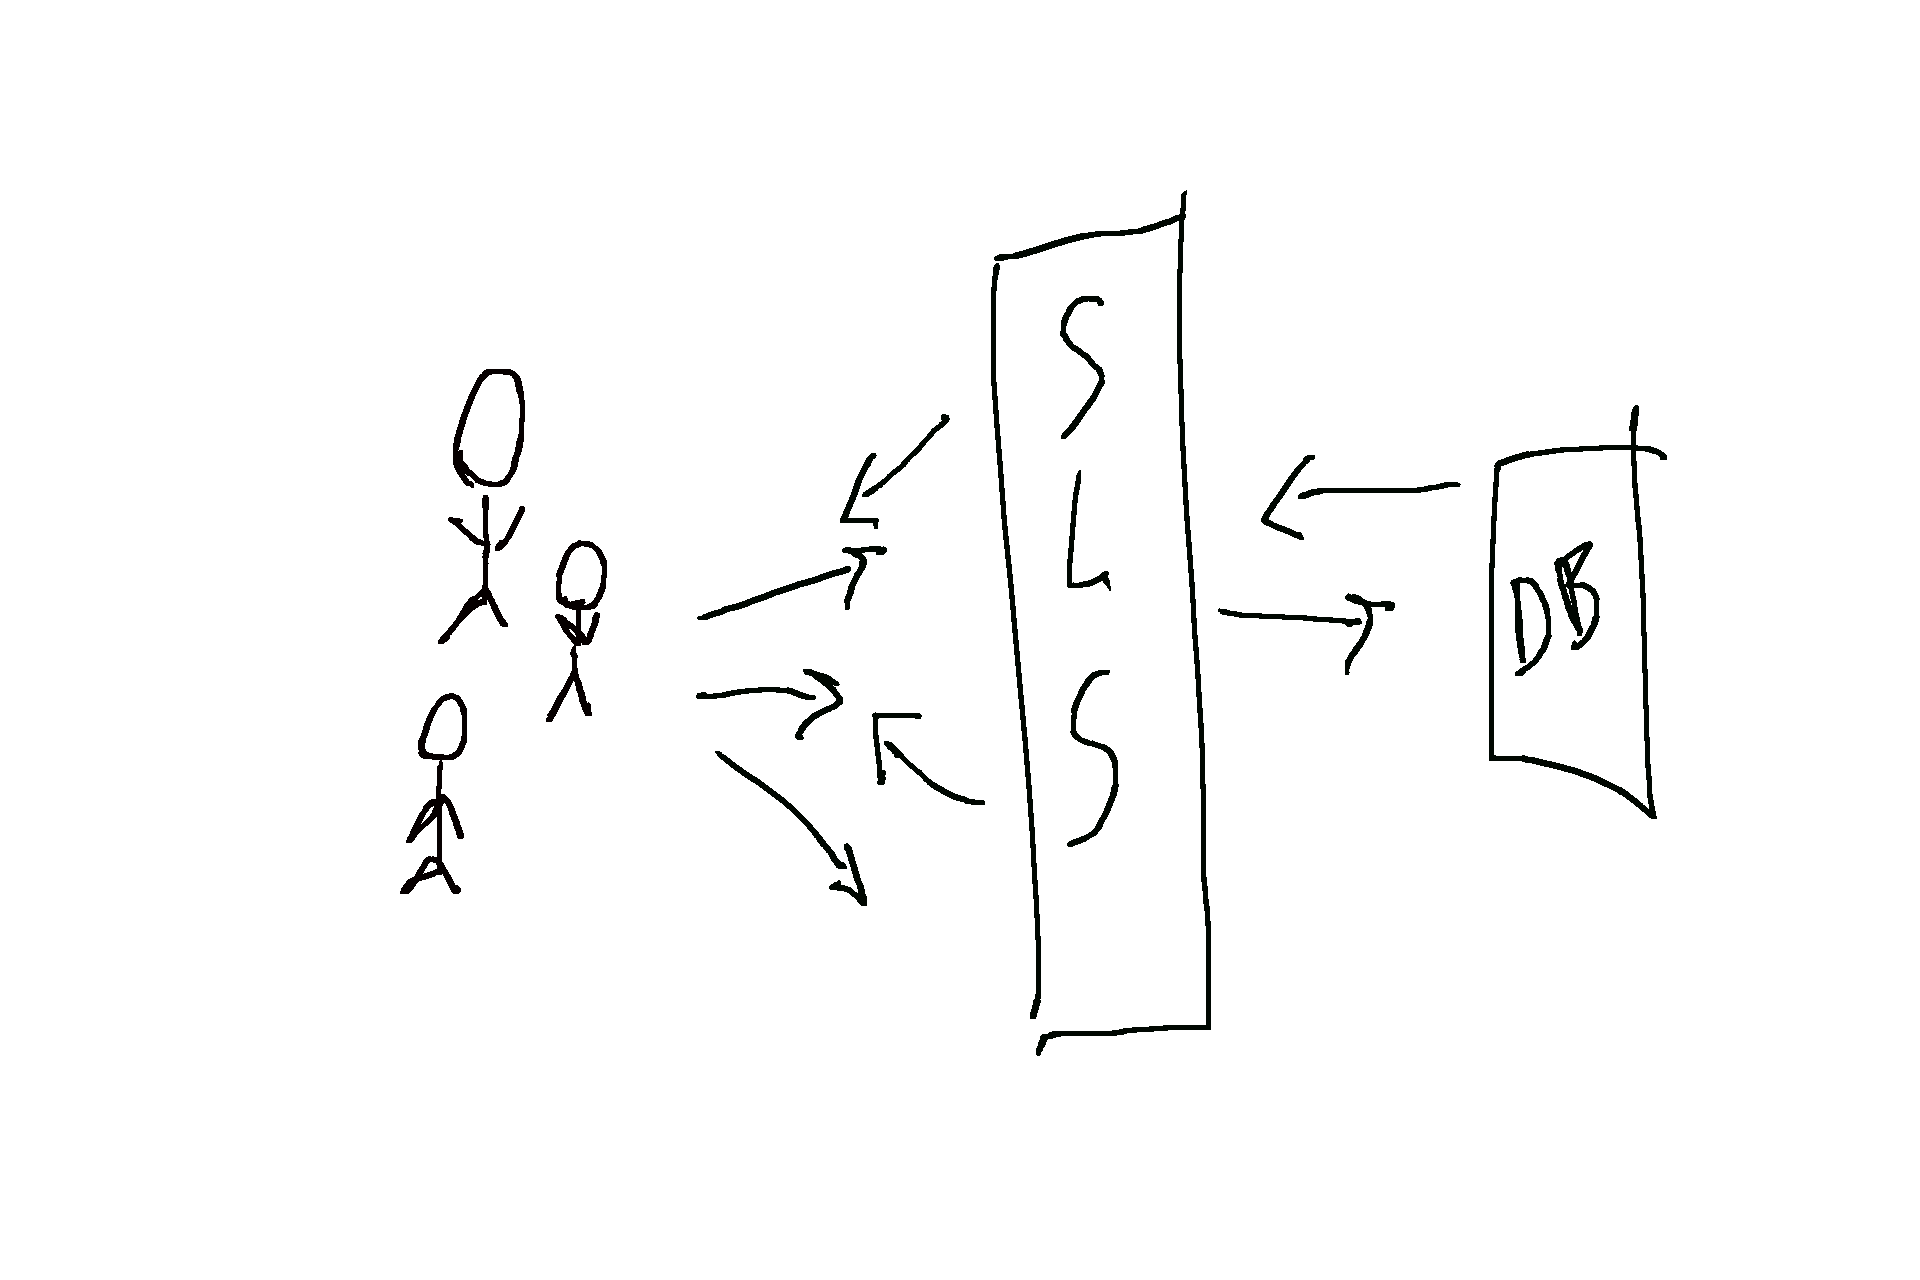 SLS
DB